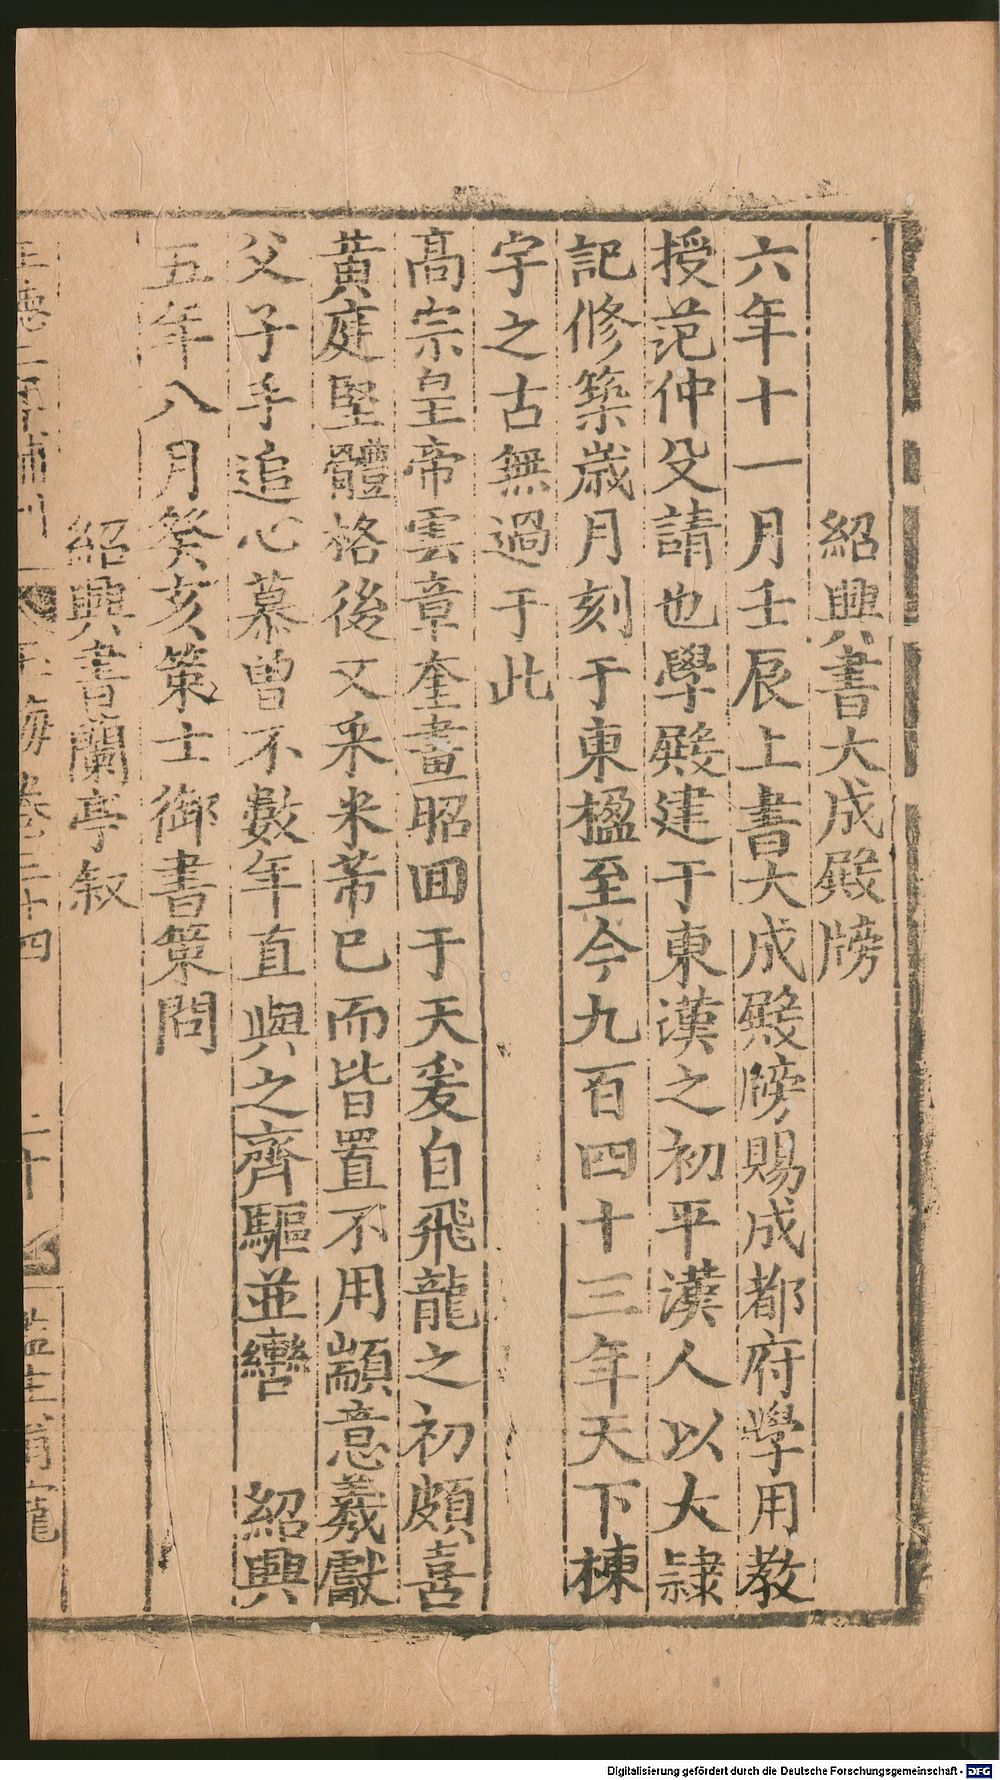 紹興書大成殿牓
六年十一月壬辰上書大成殿牓賜成都府學用教
授范仲殳請也學殿建于東漢之初平漢人以大隷
記修築歳月刻于東楹至今九百四十三年天下棟
宇之古無過于此
髙宗皇帝雲章奎畫昭囬于天爰自飛龍之初頗喜
黄庭堅體格後又采米芾已而皆置不用顓意羲獻
父子手追心慕曽不數年直與之齊驅並轡 紹興
五年八月癸亥策士御書策問
紹興書蘭亭叙
玉海卷三十四 二十 監生
Digitalisierung gefördert durch die Deutsche Forschungsgemeinschaft - DFG